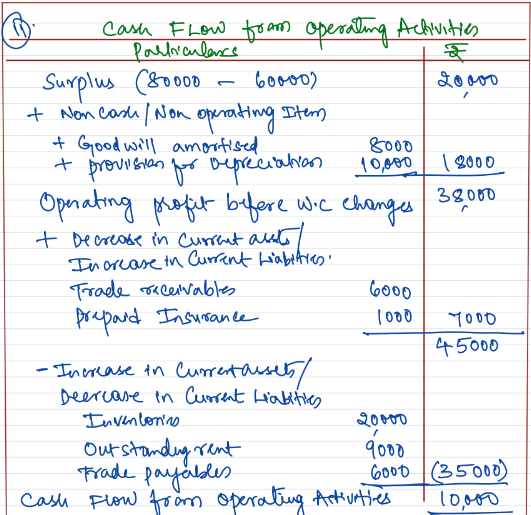 11. Cash Flow from Operating Activities
Particulars ₹
Surplus (80000 - 60000) 20,000
+ Non cash/Non operating Item
+ Goodwill amortised 8000
+ provision for Depreciation 10,000 18000
Operating profit before w.c changes 38,000
+ Decrease in Current assets/
Increase in Current Liabilities.
Trade receivables 6000
Prepaid Insurance 1000 7000
45000
- Increase in Current assets/
Decrease in Current Liabilities
Inventories 20,000
Outstanding rent 9000
Trade payables 6000 (35000)
Cash Flow from Operating Activities 10,000